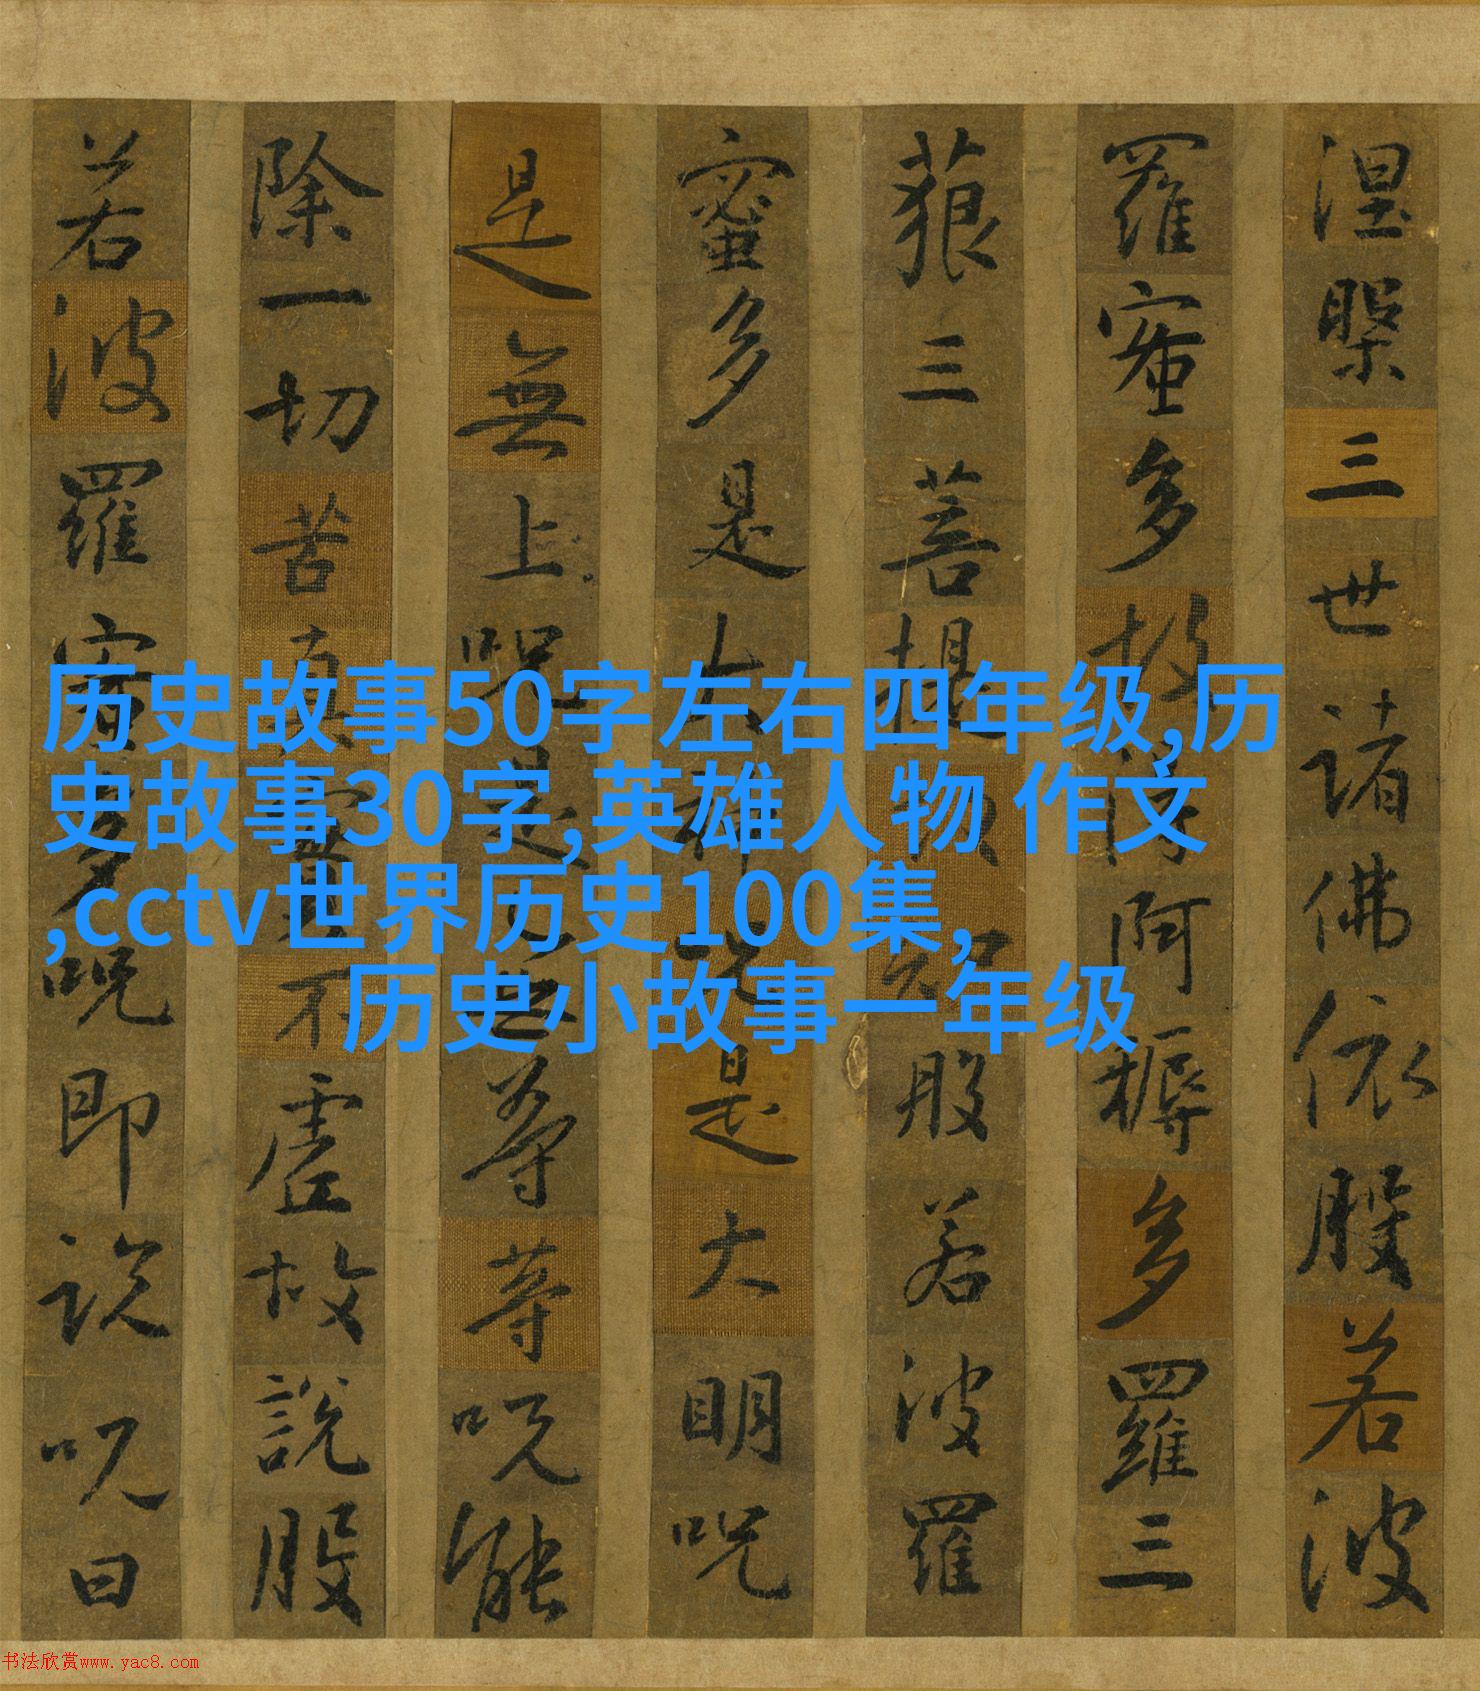 涅槃三世諸佛依般若波
羅蜜多故得阿耨多羅三
藐三菩提故知般若波羅
蜜多是大神咒是大明咒
是無上咒是無等等咒能
除一切苦真實不虛故說般
若波羅蜜多咒即說咒曰
历史故事50字左右四年级,历
史故事30字,英雄人物 作文
,cctv世界历史100集,
历史小故事一年级
书法欣赏www.yac8.com